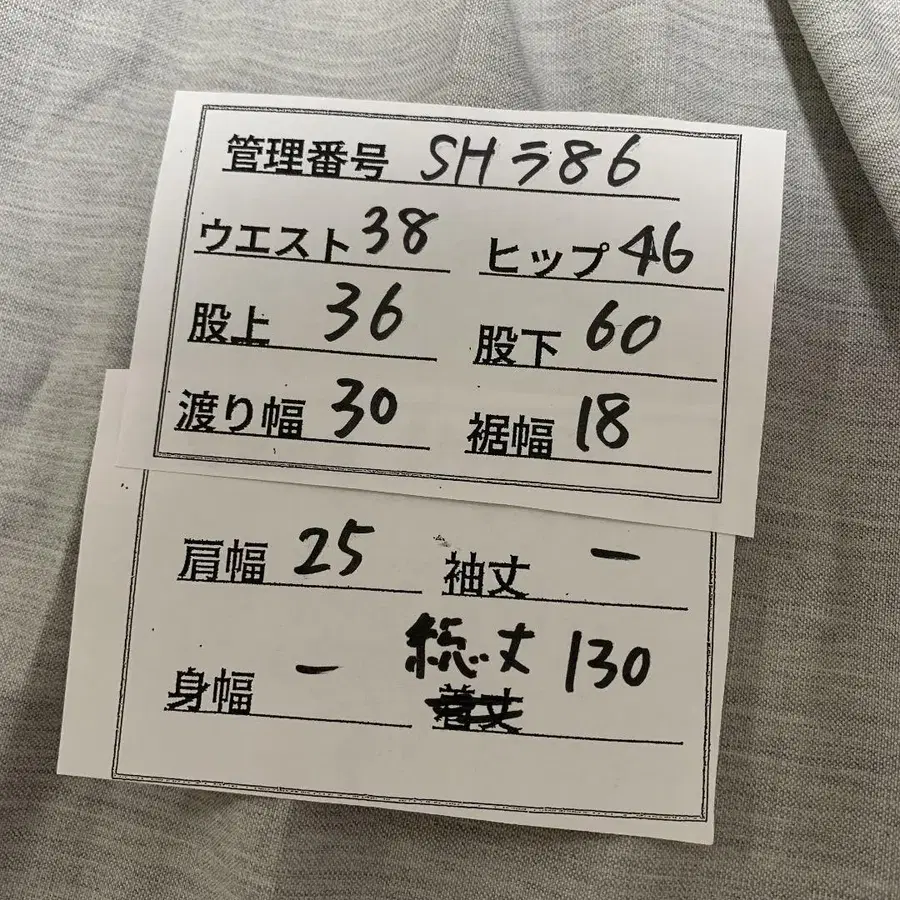 管理番号 SHラ86
ウエスト 38 ヒップ 46
股上 36 股下 60
渡り幅 30 裾幅 18
肩幅 25 袖丈 ー
身幅 ー 総丈 130
着丈